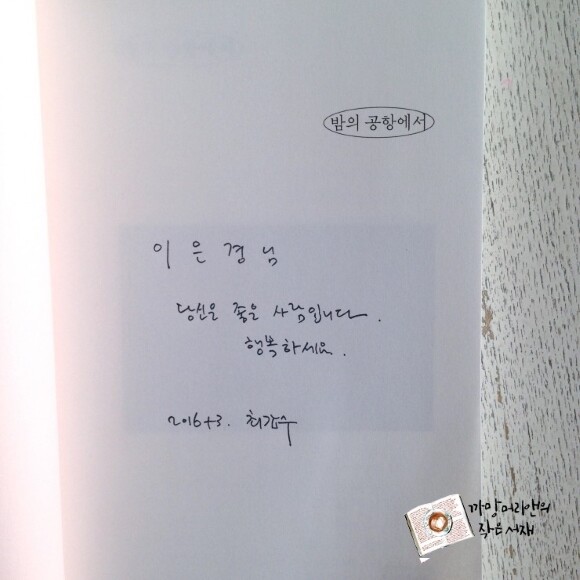 밤의 공항에서
이 은 경 님
당신은 좋은 사람입니다.
행복하세요.
2016+3. 최갑수
까망머리앤의
작은서재